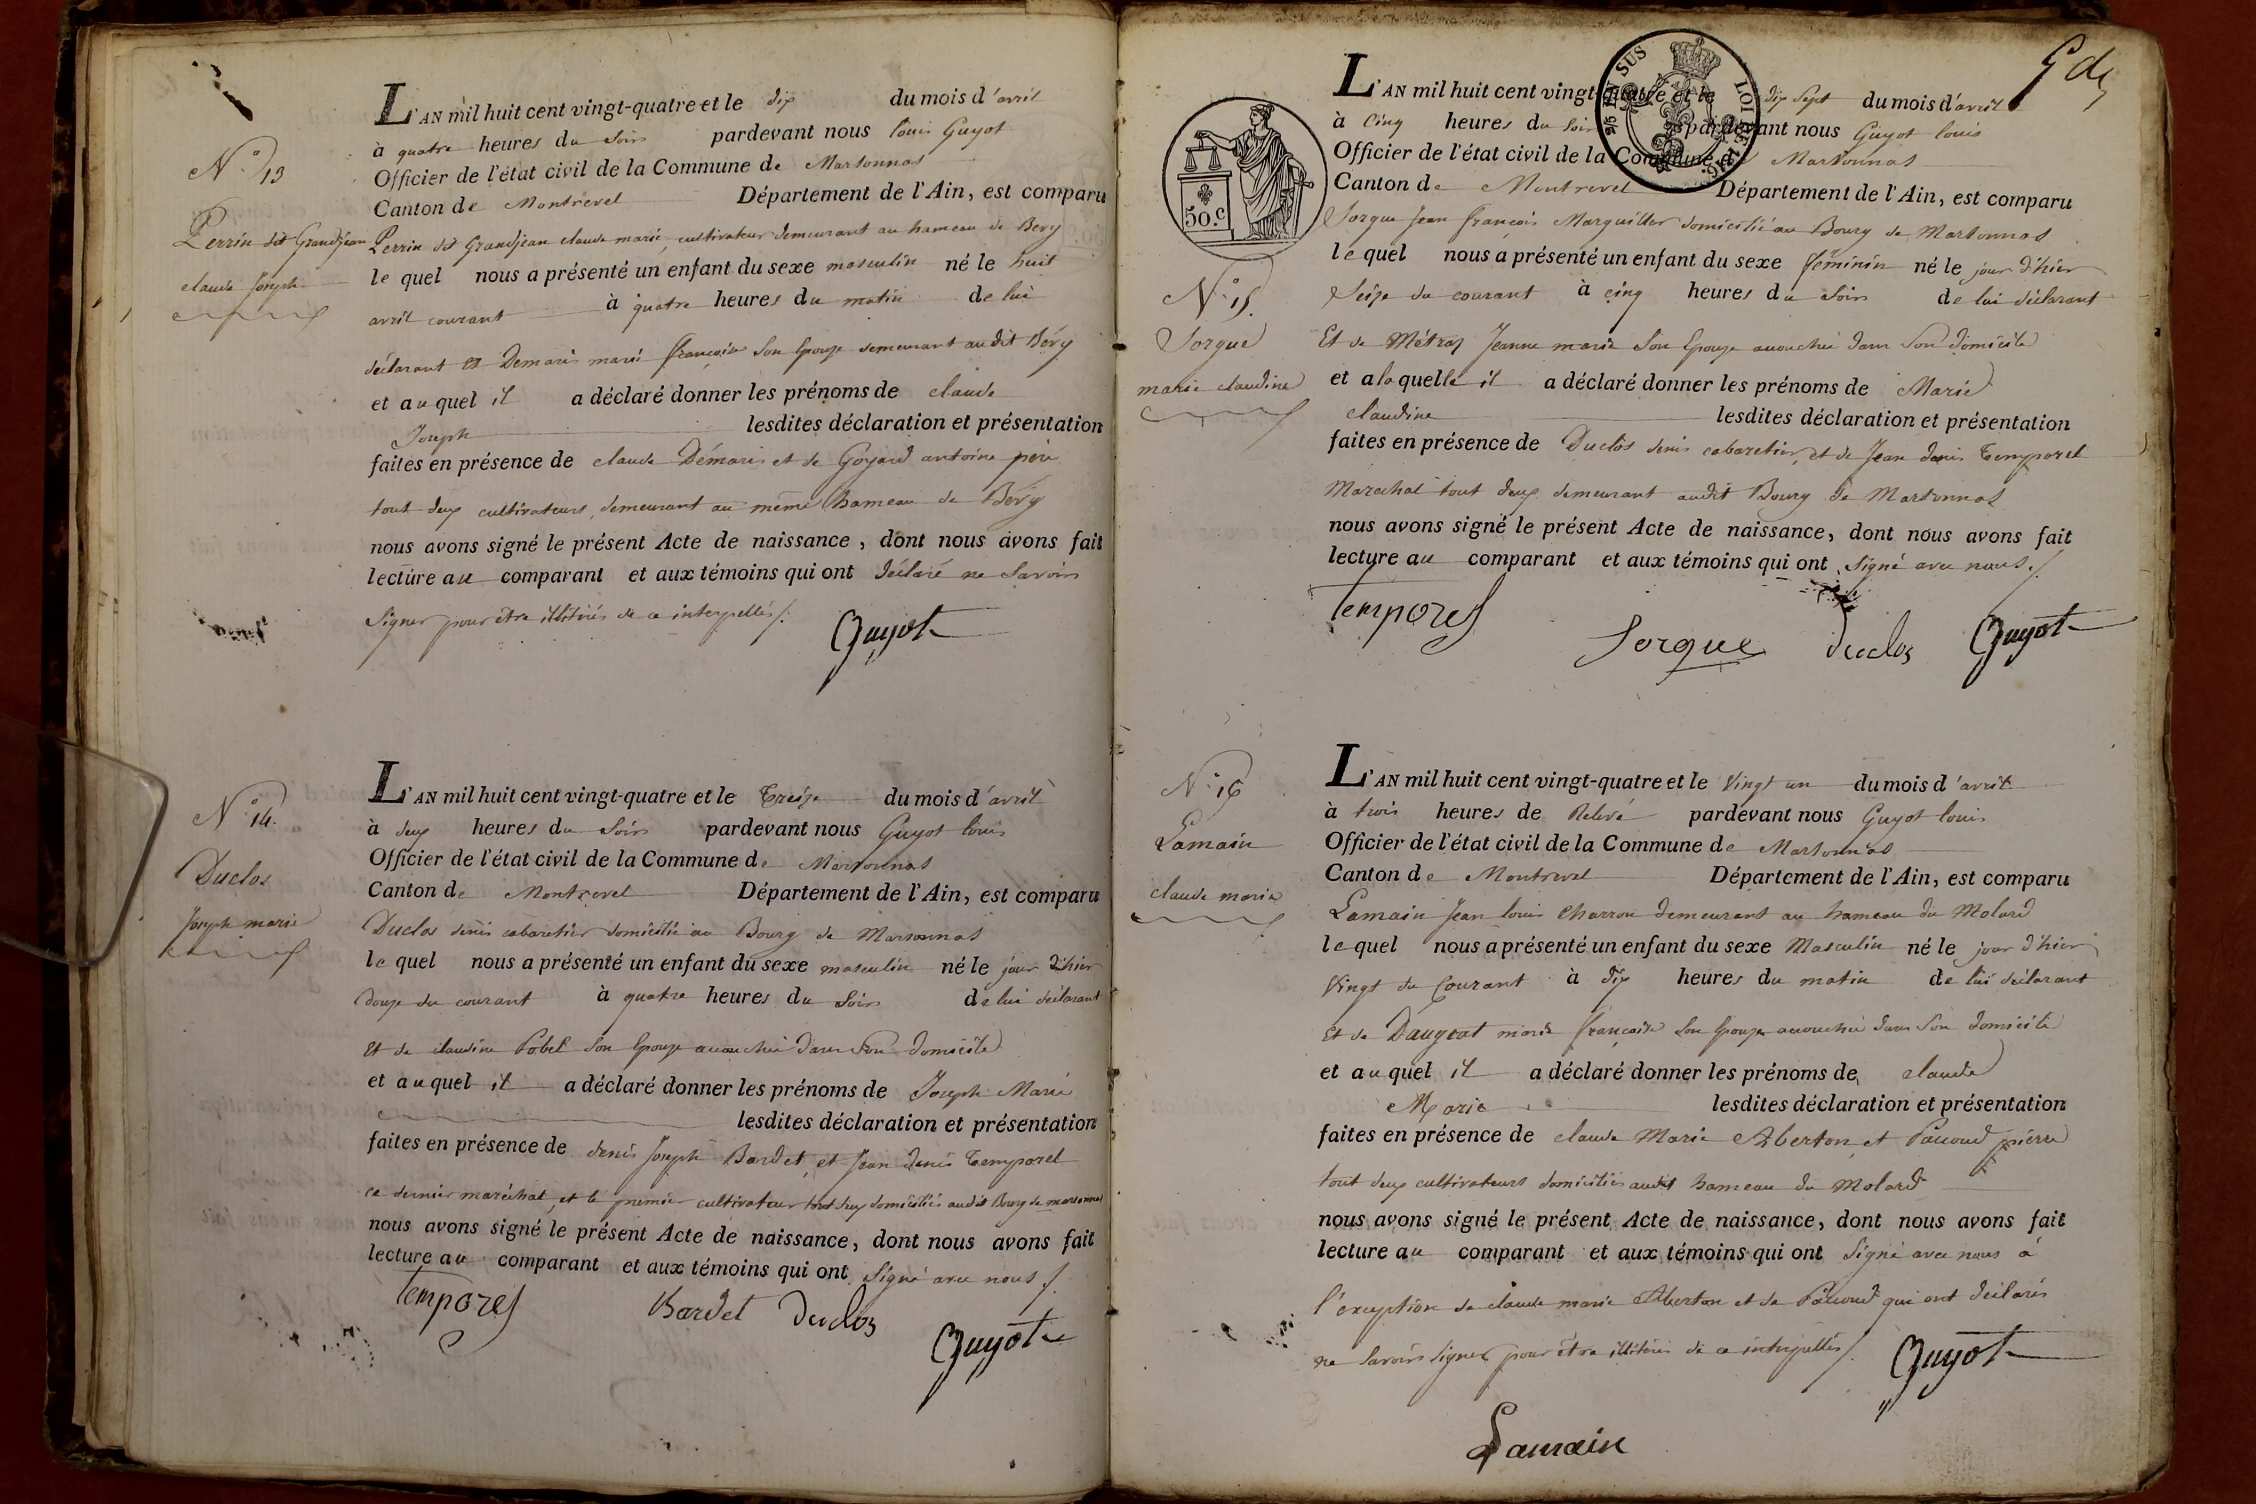 N.º 13
Perrin dit Grandjean
claude Joseph
L'AN mil huit cent vingt-quatre et le dix du mois d'avril
à quatre heures du soir pardevant nous louis Guyot
Officier de l'état civil de la Commune de Marsonnas
Canton de Montrevel Département de l'Ain, est comparu
Perrin dit Grandjean claude marie cultivateur demeurant au hameau de Bevy
le quel nous a présenté un enfant du sexe masculin né le huit
avril courant à quatre heures du matin de lui
déclarant et Demaris marie françoise son Epouse demeurant audit Bévy
et au quel il a déclaré donner les prénoms de claude
Joseph lesdites déclaration et présentation
faites en présence de claude Démaris et de Goyard antoine père
tout deux cultivateurs, demeurant au même hameau de Bévy
nous avons signé le présent Acte de naissance, dont nous avons fait
lecture au comparant et aux témoins qui ont déclaré ne savoir
signer pour être illitérés de ce interpellés /.
Guyot
N.º 14.
Duclos
Joseph marie
L'AN mil huit cent vingt-quatre et le Treize du mois d'avril
à deux heures du soir pardevant nous Guyot louis
Officier de l'état civil de la Commune de Marsonnas
Canton de Montrevel Département de l'Ain, est comparu
Duclos denis cabaretier domicilié au Bourg de Marsonnas
le quel nous a présenté un enfant du sexe masculin né le jour d'hier
douze du courant à quatre heures du soir de lui déclarant
Et de claudine Pobel son Epouse accouchée dans son domicile
et au quel il a déclaré donner les prénoms de Joseph Marie
lesdites déclaration et présentation
faites en présence de denis Joseph Bardet, et Jean denis Temporel
ce dernier maréchal, et le premier cultivateur tout deux domiciliés audit Bourg de marsonnas
nous avons signé le présent Acte de naissance, dont nous avons fait
lecture au comparant et aux témoins qui ont signé avec nous /.
Temporel
Bardet Duclos
Guyot
50.C
EN SUS
LOI DE
N.º 15.
Sorgue
marie claudine
L'AN mil huit cent vingt-quatre et le dix sept du mois d'avril
à cinq heures du soir pardevant nous Guyot louis
Officier de l'état civil de la Commune de Marsonnas
Canton de Montrevel Département de l'Ain, est comparu
Sorgue Jean françois Marguiller domicilié au Bourg de Marsonnas
le quel nous a présenté un enfant du sexe féminin né le jour d'hier
Seize du courant à cinq heures du soir de lui déclarant
Et de Métraz Jeanne marie son Epouse accouchée dans son domicile
et a la quelle il a déclaré donner les prénoms de Marie
claudine lesdites déclaration et présentation
faites en présence de Duclos denis cabaretier, et de Jean denis Temporel
Maréchal tout deux demeurant audit Bourg de Marsonnas
nous avons signé le présent Acte de naissance, dont nous avons fait
lecture au comparant et aux témoins qui ont signé avec nous /.
Temporel
Sorgue Duclos Guyot
N.º 16
Lamain
claude marie
L'AN mil huit cent vingt-quatre et le vingt un du mois d'avril
à trois heures de Relevé pardevant nous Guyot louis
Officier de l'état civil de la Commune de Marsonnas
Canton de Montrevel Département de l'Ain, est comparu
Lamain Jean louis charron demeurant au hameau du Molard
le quel nous a présenté un enfant du sexe Masculin né le jour d'hier
vingt du Courant à dix heures du matin de lui déclarant
Et de Daugeat marie françoise son Epouse accouchée dans son domicile
et au quel il a déclaré donner les prénoms de claude
Marie lesdites déclaration et présentation
faites en présence de claude Marie Aberton et Pacoud pierre
tout deux cultivateurs domiciliés audit hameau du Molard
nous avons signé le présent Acte de naissance, dont nous avons fait
lecture au comparant et aux témoins qui ont signé avec nous à
l'exception de claude marie Aberton et de Pacoud qui ont déclarés
ne savoir signer pour être illitérés de ce interpellés /.
Guyot
Lamain